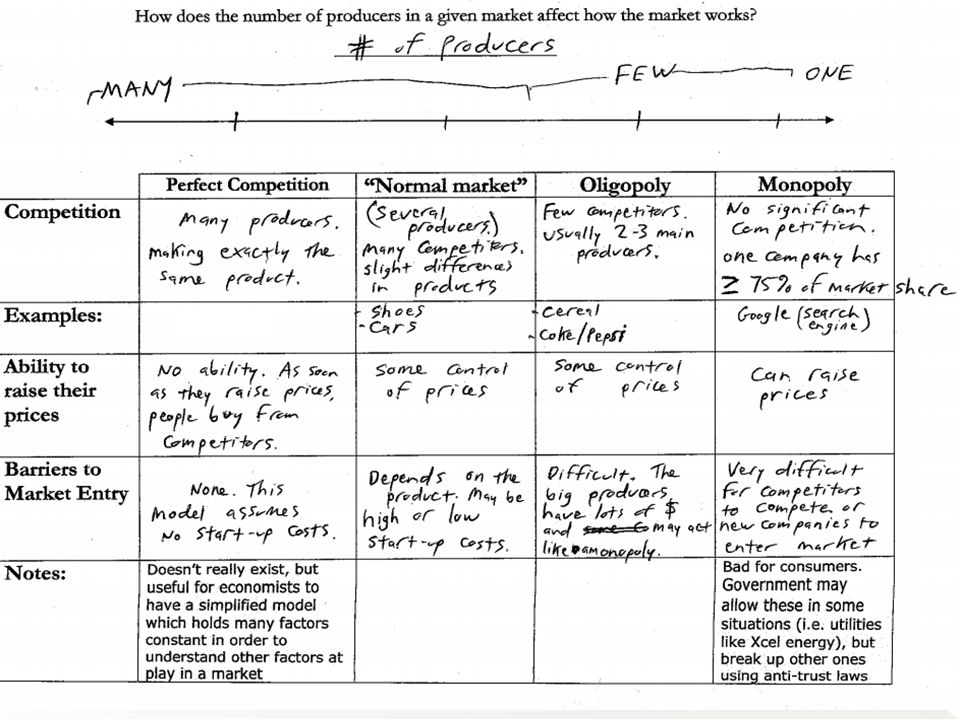 How does the number of producers in a given market affect how the market works?
# of Producers
MANY FEW ONE
Perfect Competition "Normal market" Oligopoly Monopoly
Competition
Many producers.
making exactly the
same product.
(Several
producers.)
Many Competitors.
slight differences
in products
Few competitors.
usually 2-3 main
producers.
No significant
Competition.
one company has
≥ 75% of market share
Examples:
- Shoes
- Cars
- Cereal
- Coke/Pepsi
Google (search
engine)
Ability to
raise their
prices
No ability. As soon
as they raise prices,
people buy from
Competitors.
Some Control
of prices
Some control
of prices
Can raise
prices
Barriers to
Market Entry
None. This
Model assumes
No start-up costs.
Depends on the
product. May be
high or low
start-up costs.
Difficult. The
big producers
have lots of $
and may act
like a monopoly.
Very difficult
for competitors
to compete or
new companies to
enter market
Notes:
Doesn't really exist, but
useful for economists to
have a simplified model
which holds many factors
constant in order to
understand other factors at
play in a market
Bad for consumers.
Government may
allow these in some
situations (i.e. utilities
like Xcel energy), but
break up other ones
using anti-trust laws